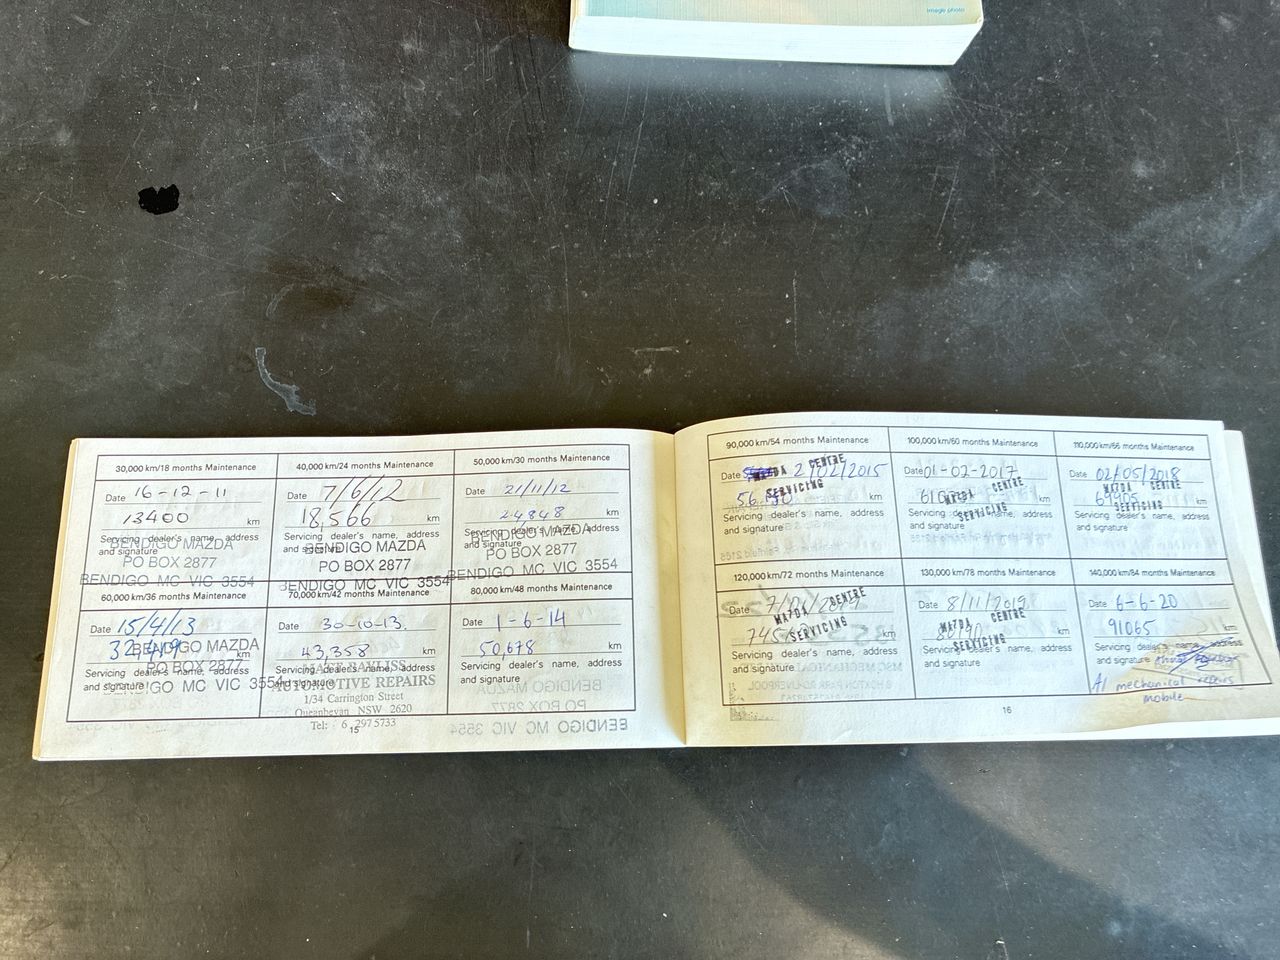 image photo
30,000 km/18 months Maintenance
Date 16-12-11
13400 km
Servicing dealer's name, address
and signature
BENDIGO MAZDA
PO BOX 2877
BENDIGO MC VIC 3554
40,000 km/24 months Maintenance
Date 7/6/12
18,566 km
Servicing dealer's name, address
and signature
BENDIGO MAZDA
PO BOX 2877
BENDIGO MC VIC 3554
50,000 km/30 months Maintenance
Date 21/11/12
24848 km
Servicing dealer's name, address
and signature
BENDIGO MAZDA
PO BOX 2877
BENDIGO MC VIC 3554
60,000 km/36 months Maintenance
Date 15/4/13
km
Servicing dealer's name, address
and signature
BENDIGO MAZDA
PO BOX 2877
BENDIGO MC VIC 3554
70,000 km/42 months Maintenance
Date 30-10-13.
43,358 km
Servicing dealer's name, address
and signature
BAYLISS
AUTOMOTIVE REPAIRS
1/34 Carrington Street
Queanbeyan NSW 2620
Tel: 6 297 5733
80,000 km/48 months Maintenance
Date 1-6-14
50,678 km
Servicing dealer's name, address
and signature
15
90,000 km/54 months Maintenance
Date 2/02/2015
km
MAZDA CENTRE
SERVICING
Servicing dealer's name, address
and signature
100,000 km/60 months Maintenance
Date 01-02-2017
km
MAZDA CENTRE
SERVICING
Servicing dealer's name, address
and signature
110,000 km/66 months Maintenance
Date 02/05/2018
69905 km
MAZDA CENTRE
SERVICING
Servicing dealer's name, address
and signature
120,000 km/72 months Maintenance
Date
km
MAZDA CENTRE
SERVICING
Servicing dealer's name, address
and signature
130,000 km/78 months Maintenance
Date 8/11/2019
km
MAZDA CENTRE
SERVICING
Servicing dealer's name, address
and signature
140,000 km/84 months Maintenance
Date 6-6-20
91065 km
Servicing dealer's name, address
and signature
A1 mechanical repairs
mobile
16